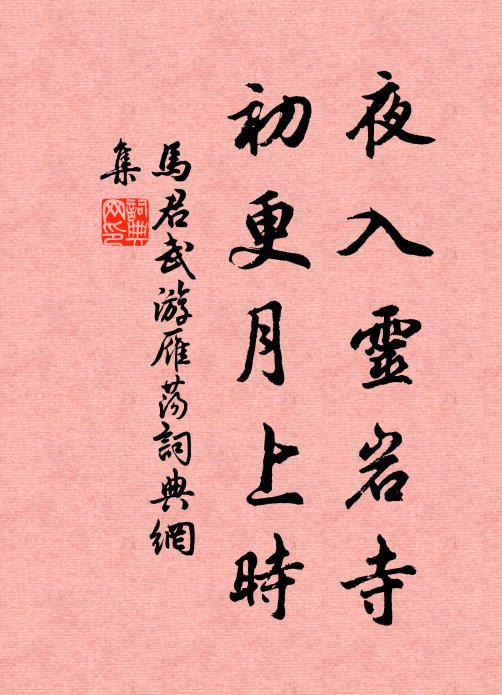 夜入靈岩寺
初更月上時
馬君武游雁蕩詞典網
集
詞典網印